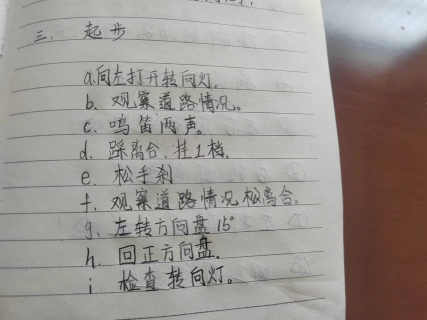 三、 起步
a.向左打开转向灯.
b. 观察道路情况。
c. 鸣笛两声。
d. 踩离合、挂1档.
e. 松手刹
f. 观察道路情况松离合.
g. 左转方向盘15°
h. 回正方向盘.
i 检查转向灯。